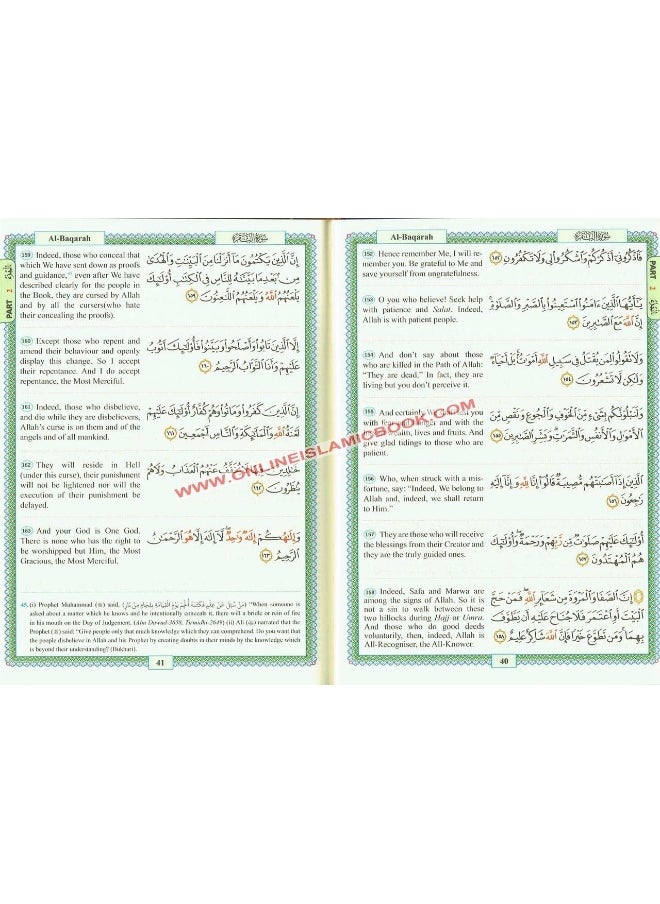 Al-Baqarah
سورة البقرة
PART 2
152 Hence remember Me, I will re-
member you. Be grateful to Me and
save yourself from ungratefulness.
فَاذْكُرُونِي أَذْكُرْكُمْ وَاشْكُرُوا لِي وَلَا تَكْفُرُونِ ١٥٢
153 O you who believe! Seek help
with patience and Salat. Indeed,
Allah is with patient people.
يَا أَيُّهَا الَّذِينَ ءَامَنُوا اسْتَعِينُوا بِالصَّبْرِ وَالصَّلَوٰةِ
إِنَّ اللَّهَ مَعَ الصَّٰبِرِينَ ١٥٣
154 And don't say about those
who are killed in the Path of Allah:
"They are dead." In fact, they are
living but you don't perceive it.
وَلَا تَقُولُوا لِمَن يُقْتَلُ فِي سَبِيلِ اللَّهِ أَمْوَٰتٌ بَلْ أَحْيَاءٌ
وَلَٰكِن لَّا تَشْعُرُونَ ١٥٤
155 And certainly We you
with and with the
wealth, lives and fruits. And
give glad tidings to those who are
patient.
وَلَنَبْلُوَنَّكُم بِشَيْءٍ مِّنَ الْخَوْفِ وَالْجُوعِ وَنَقْصٍ مِّنَ
الْأَمْوَٰلِ وَالْأَنفُسِ وَالثَّمَرَٰتِ وَبَشِّرِ الصَّٰبِرِينَ ١٥٥
156 Who, when struck with a mis-
fortune, say: "Indeed, We belong to
Allah and, indeed, we shall return
to Him."
الَّذِينَ إِذَا أَصَٰبَتْهُم مُّصِيبَةٌ قَالُوا إِنَّا لِلَّهِ وَإِنَّا إِلَيْهِ
رَٰجِعُونَ ١٥٦
157 They are those who will receive
the blessings from their Creator and
they are the truly guided ones.
أُولَٰئِكَ عَلَيْهِمْ صَلَوَٰتٌ مِّن رَّبِّهِمْ وَرَحْمَةٌ وَأُولَٰئِكَ
هُمُ الْمُهْتَدُونَ ١٥٧
158 Indeed, Safa and Marwa are
among the signs of Allah. So it is
not a sin to walk between these
two hillocks during Hajj or Umra.
And those who do good deeds
voluntarily, then, indeed, Allah is
All-Recogniser, the All-Knower.
إِنَّ الصَّفَا وَالْمَرْوَةَ مِن شَعَائِرِ اللَّهِ فَمَنْ حَجَّ
الْبَيْتَ أَوِ اعْتَمَرَ فَلَا جُنَاحَ عَلَيْهِ أَن يَطَّوَّفَ
بِهِمَا وَمَن تَطَوَّعَ خَيْرًا فَإِنَّ اللَّهَ شَاكِرٌ عَلِيمٌ ١٥٨
40
Al-Baqarah
سورة البقرة
PART 2
159 Indeed, those who conceal that
which We have sent down as proofs
and guidance,45 even after We have
described clearly for the people in
the Book, they are cursed by Allah
and by all the cursers(who hate
their concealing the proofs).
إِنَّ الَّذِينَ يَكْتُمُونَ مَا أَنزَلْنَا مِنَ الْبَيِّنَٰتِ وَالْهُدَىٰ
مِن بَعْدِ مَا بَيَّنَّٰهُ لِلنَّاسِ فِي الْكِتَٰبِ أُولَٰئِكَ
يَلْعَنُهُمُ اللَّهُ وَيَلْعَنُهُمُ اللَّٰعِنُونَ ١٥٩
160 Except those who repent and
amend their behaviour and openly
display this change. So I accept
their repentance. And I do accept
repentance, the Most Merciful.
إِلَّا الَّذِينَ تَابُوا وَأَصْلَحُوا وَبَيَّنُوا فَأُولَٰئِكَ أَتُوبُ
عَلَيْهِمْ وَأَنَا التَّوَّابُ الرَّحِيمُ ١٦٠
161 Indeed, those who disbelieve,
and die while they are disbelievers,
Allah's curse is on them and of the
angels and of all mankind.
إِنَّ الَّذِينَ كَفَرُوا وَمَاتُوا وَهُمْ كُفَّارٌ أُولَٰئِكَ عَلَيْهِمْ
لَعْنَةُ اللَّهِ وَالْمَلَٰئِكَةِ وَالنَّاسِ أَجْمَعِينَ ١٦١
162 They will reside in Hell
(under this curse), their punishment
will not be lightened nor will the
execution of their punishment be
delayed.
خَٰلِدِينَ فِيهَا لَا يُخَفَّفُ عَنْهُمُ الْعَذَابُ وَلَا هُمْ
يُنظَرُونَ ١٦٢
163 And your God is One God.
There is none who has the right to
be worshipped but Him, the Most
Gracious, the Most Merciful.
وَإِلَٰهُكُمْ إِلَٰهٌ وَٰحِدٌ لَّا إِلَٰهَ إِلَّا هُوَ الرَّحْمَٰنُ
الرَّحِيمُ ١٦٣
45.(i) Prophet Muhammad (ﷺ) said, "When someone is
asked about a matter which he knows and he intentionally conceals it, there will a bridle or rein of fire
in his mouth on the Day of Judgement. (Abu Dawud-3658, Tirmidhi-2649) (ii) Ali narrated that the
Prophet (ﷺ) said: "Give people only that much knowledge which they can comprehend. Do you want that
the people disbelieve in Allah and his Prophet by creating doubts in their minds by the knowledge which
is beyond their understanding? (Bukhari).
41
WWW.ONLINEISLAMICBOOK.COM